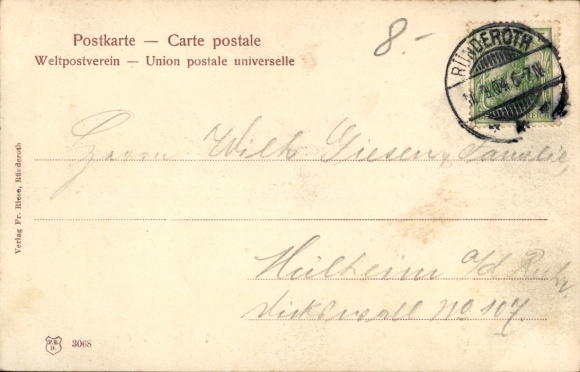 Postkarte — Carte postale
Weltpostverein — Union postale universelle
8.-
RÜNDEROTH
6-7N.
Herrn Wilh. Giesen & Familie,
Mülheim a/d Ruhr
Dickswall No. 107.
Verlag Fr. Riese, Ründeroth
3068